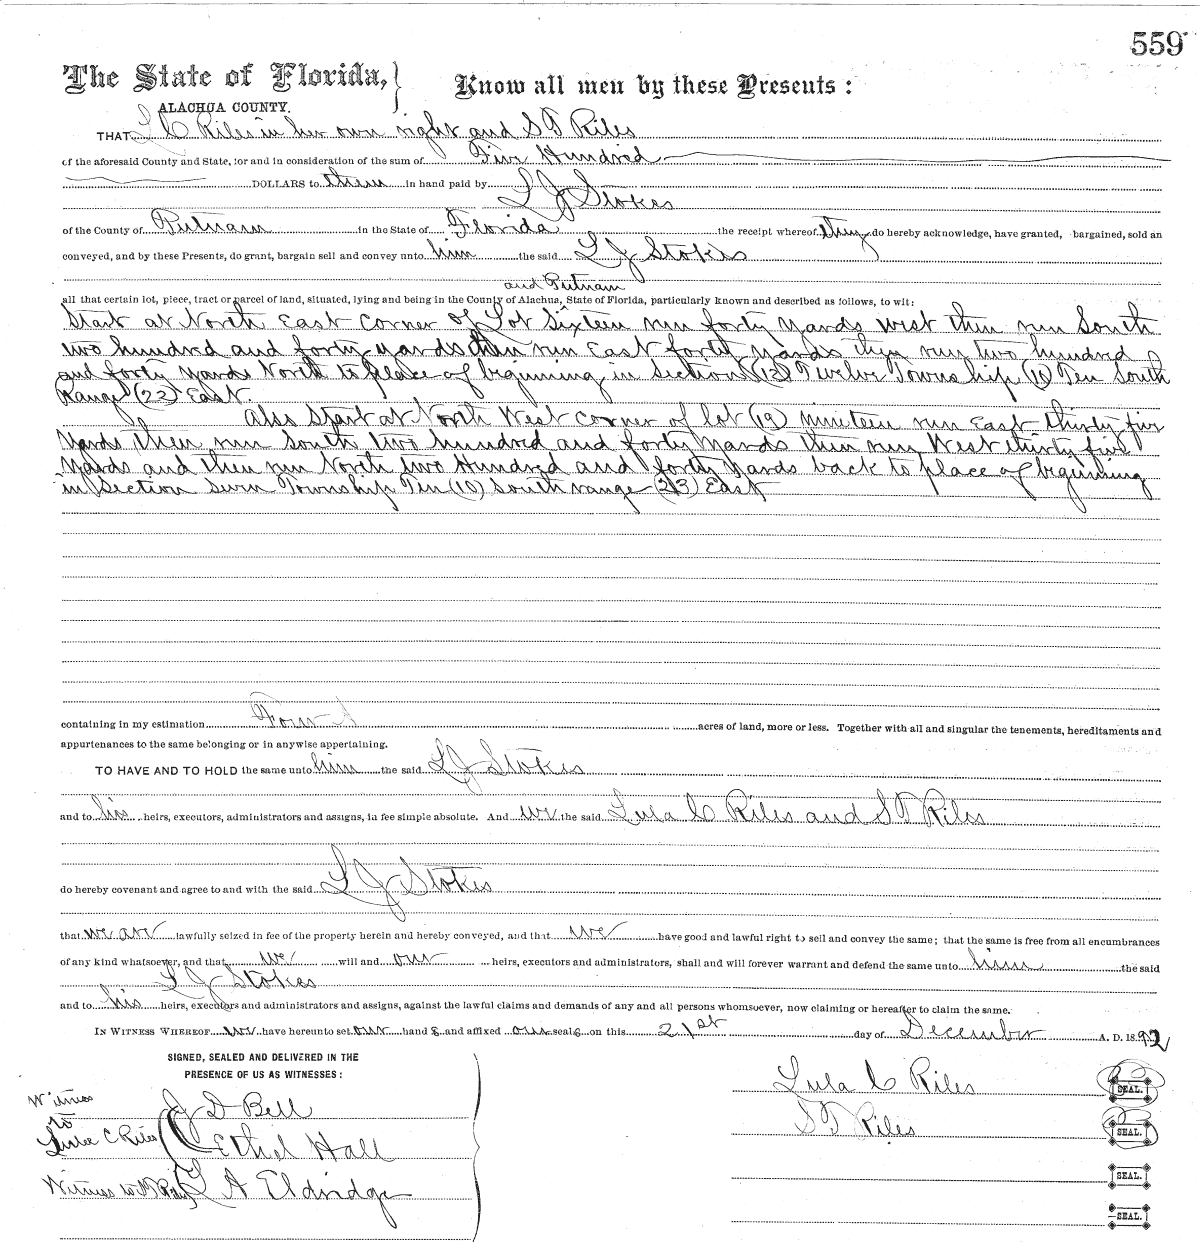 559
The State of Florida, Know all men by these Presents:
ALACHUA COUNTY.
THAT L C Riles in her own right and S T Riles
of the aforesaid County and State, for and in consideration of the sum of Five Hundred
DOLLARS to them in hand paid by
L J Stokes
of the County of Putnam in the State of Florida the receipt whereof they do hereby acknowledge, have granted, bargained, sold an
conveyed, and by these Presents, do grant, bargain sell and convey unto him the said L J Stokes
and Putnam
all that certain lot, piece, tract or parcel of land, situated, lying and being in the County of Alachua, State of Florida, particularly known and described as follows, to wit:
Start at North East Corner of Lot Sixteen run forty yards west then run South
two hundred and forty yards then run East forty yards then run two hundred
and forty yards North to place of beginning in Section (12) Twelve Township (10) Ten South
Range (22) East.
Also Start at North West corner of lot (19) nineteen run East thirty five
yards then run South two hundred and forty yards then run West thirty five
yards and then run North two Hundred and forty yards back to place of beginning
in Section Township Ten (10) South range (23) East
containing in my estimation Four acres of land, more or less. Together with all and singular the tenements, hereditaments and
appurtenances to the same belonging or in anywise appertaining.
TO HAVE AND TO HOLD the same unto him the said L J Stokes
and to his heirs, executors, administrators and assigns, in fee simple absolute. And we the said Lula C Riles and S T Riles
do hereby covenant and agree to and with the said L J Stokes
that we are lawfully seized in fee of the property herein and hereby conveyed, and that we have good and lawful right to sell and convey the same; that the same is free from all encumbrances
of any kind whatsoever, and that we will and our heirs, executors and administrators, shall and will forever warrant and defend the same unto him the said
L J Stokes
and to his heirs, executors and administrators and assigns, against the lawful claims and demands of any and all persons whomsoever, now claiming or hereafter to claim the same.
IN WITNESS WHEREOF we have hereunto set our hand s and affixed our seals on this 21st day of December A. D. 1892
SIGNED, SEALED AND DELIVERED IN THE
PRESENCE OF US AS WITNESSES:
Lula C Riles SEAL.
Witness J D Bell
to S T Riles SEAL.
C Riles Ethel Hall
SEAL.
Witness to Riles L A Eldridge
SEAL.